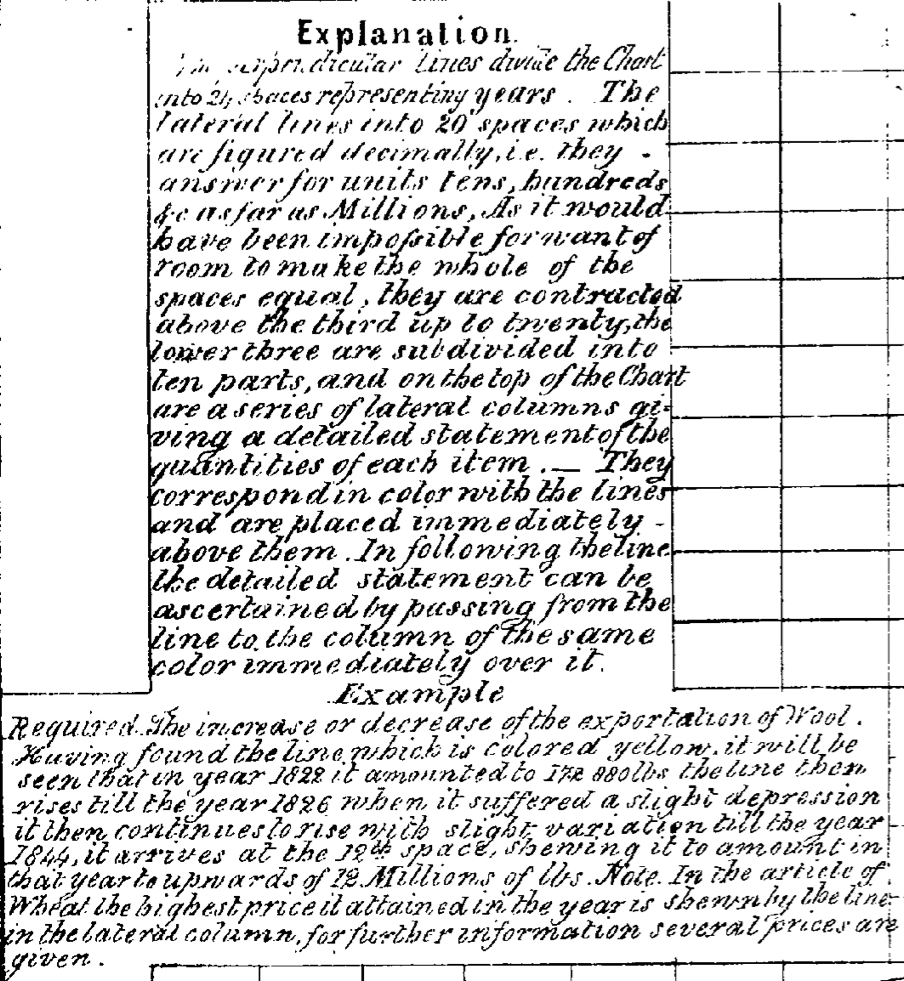 Explanation.
perpendicular Lines divide the Chart
into 24 spaces representing years. The
lateral lines into 20 spaces which
are figured decimally, i.e. they -
answer for units tens, hundreds
&c as far as Millions, As it would
have been impoſsible for want of
room to make the whole of the
spaces equal, they are contracted
above the third up to twenty, the
lower three are subdivided into
ten parts, and on the top of the Chart
are a series of lateral columns gi-
ving a detailed statement of the
quantities of each item. — They
correspond in color with the lines
and are placed immediately -
above them. In following the line
the detailed statement can be
ascertained by passing from the
line to the column of the same
color immediately over it.
Example
Required. The increase or decrease of the exportation of Wool.
Having found the line which is colored yellow, it will be
seen that in year 1822 it amounted to 172 880 lbs the line then
rises till the year 1826 when it suffered a slight depression
it then continues to rise with slight variation till the year
1844, it arrives at the 12th space, shewing it to amount in
that year to upwards of 12 Millions of lbs. Note. In the article of
Wheat the highest price it attained in the year is shewn by the line
in the lateral column, for further information several prices are
given.